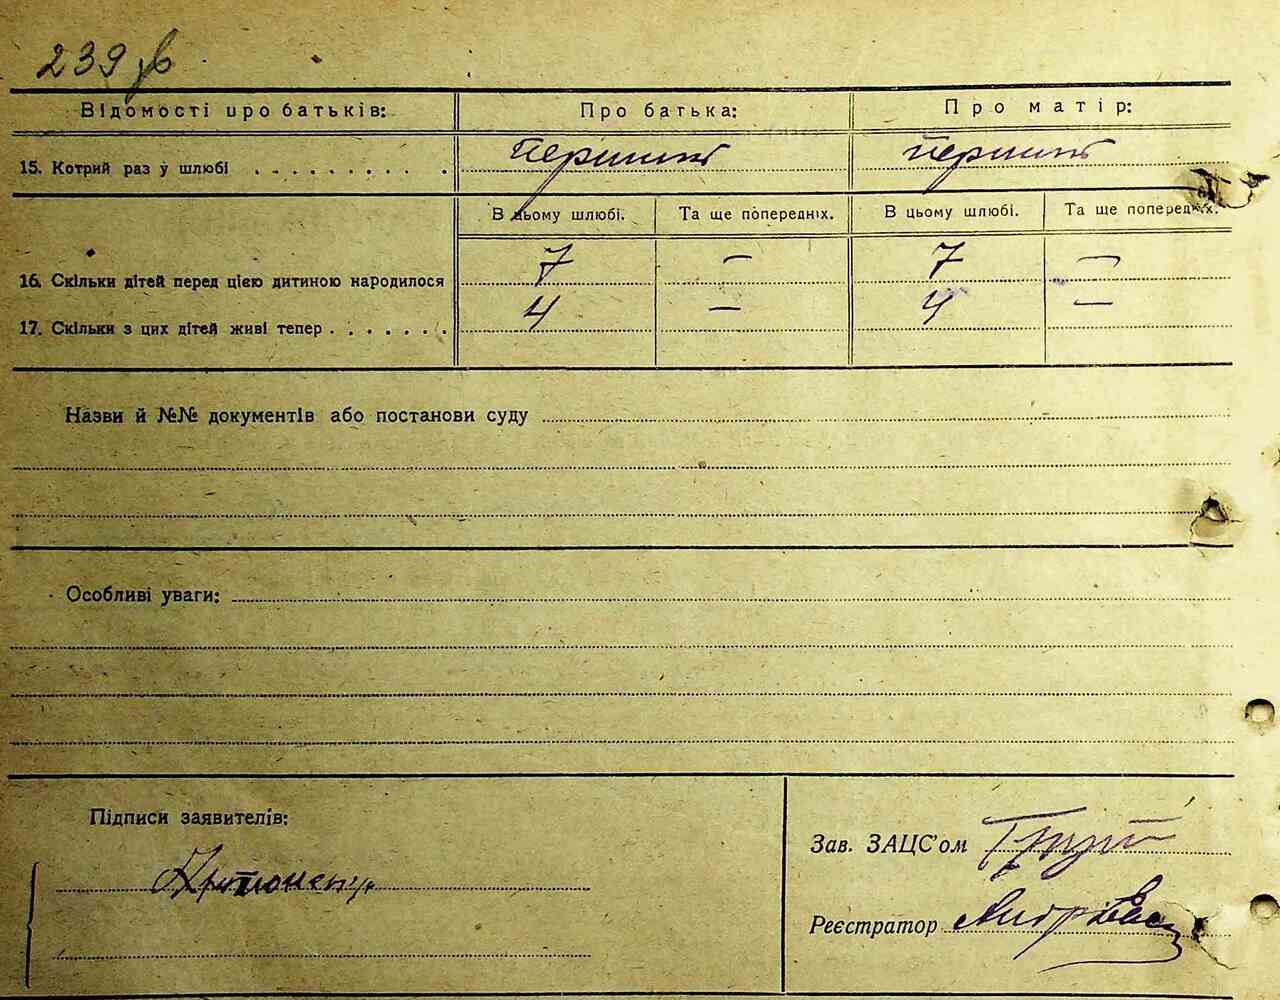 239 зв
Відомості про батьків: Про батька: Про матір:
15. Котрий раз у шлюбі . . . . . . . . . . перший перший
В цьому шлюбі. Та ще попередніх. В цьому шлюбі. Та ще попередніх.
16. Скільки дітей перед цією дитиною народилося 7 — 7 —
17. Скільки з цих дітей живі тепер . . . . . . . 4 — 4 —
Назви й №№ документів або постанови суду
Особливі уваги:
Підписи заявителів:
Зав. ЗАЦС'ом
Реєстратор